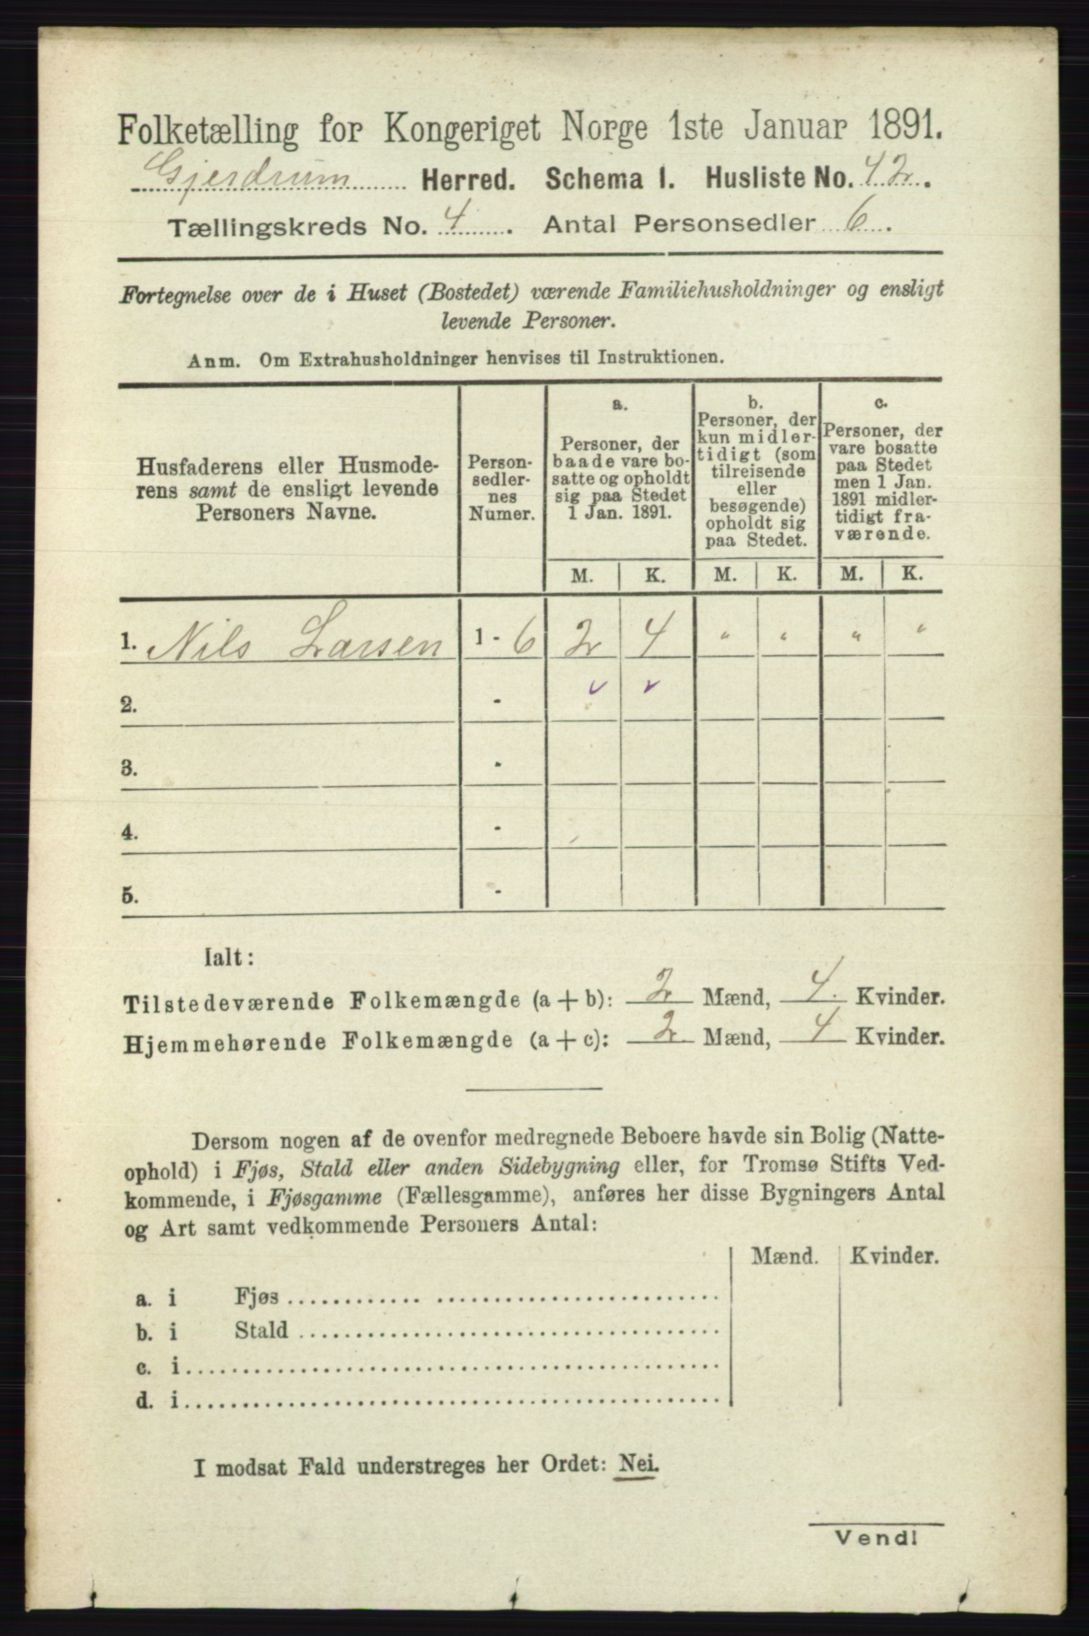 Folketælling for Kongeriget Norge 1ste Januar 1891.
Gjerdrum Herred. Schema I. Husliste No. 42.
Tællingskreds No. 4. Antal Personsedler 6.
Fortegnelse over de i Huset (Bostedet) værende Familiehusholdninger og ensligt
levende Personer.
Anm. Om Extrahusholdninger henvises til Instruktionen.
Husfaderens eller Husmode-
rens samt de ensligt levende
Personers Navne.
Person-
sedler-
nes
Numer.
a.
Personer, der
baade vare bo-
satte og opholdt
sig paa Stedet
1 Jan. 1891.
b.
Personer, der
kun midler-
tidigt (som
tilreisende
eller
besøgende)
opholdt sig
paa Stedet.
c.
Personer, der
vare bosatte
paa Stedet
men 1 Jan.
1891 midler-
tidigt fra-
værende.
M. K. M. K. M. K.
1. Nils Larsen 1 - 6 2 4 " " " "
2. -
3. -
4. -
5. -
Ialt:
Tilstedeværende Folkemængde (a + b): 2 Mænd, 4 Kvinder.
Hjemmehørende Folkemængde (a + c): 2 Mænd, 4 Kvinder.
Dersom nogen af de ovenfor medregnede Beboere havde sin Bolig (Natte-
ophold) i Fjøs, Stald eller anden Sidebygning eller, for Tromsø Stifts Ved-
kommende, i Fjøsgamme (Fællesgamme), anføres her disse Bygningers Antal
og Art samt vedkommende Personers Antal:
Mænd. Kvinder.
a. i Fjøs
b. i Stald
c. i
d. i
I modsat Fald understreges her Ordet: Nei.
Vend!